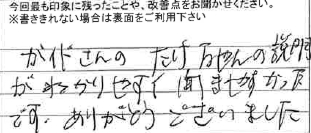 今回最も印象に残ったことや、改善点をお聞かせください。
※書ききれない場合は裏面をご利用下さい
ガイドさんの たけ 方やんの説明
がわかりやすく 聞きやすかった
です. ありがとうございました